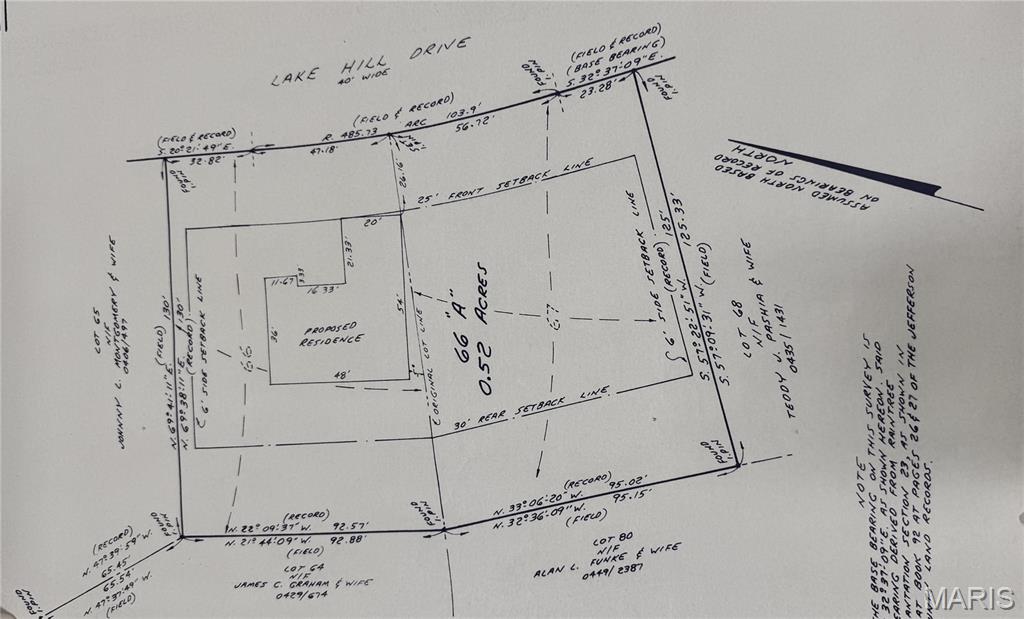 LAKE HILL DRIVE
40' WIDE
(FIELD & RECORD)
(BASE BEARING)
S. 32°37'09"E.
23.28'
FOUND
I. PIN
FOUND
I. PIN
(FIELD & RECORD)
ARC 103.9'
56.72'
R. 485.73
47.18'
SET
I. PIN
(FIELD & RECORD)
S. 20°21'49"E.
32.82'
FOUND
I. PIN
ASSUMED NORTH BASED
ON BEARINGS OF RECORD
NORTH
26.16'
25' FRONT SETBACK LINE
20'
21.33'
11.67
3.33'
16.33'
36'
PROPOSED
RESIDENCE
54'
48'
5'
ORIGINAL LOT LINE
66 "A"
0.52 ACRES
66
67
6' SIDE SETBACK LINE
(RECORD) 125'
S. 57°22'51"W.
S. 57°09'31"W. 125.33'
(FIELD)
LOT 68
N/F
TEDDY J. PASHIA & WIFE
0435/1431
LOT 65
N/F
JONNY L. MONTGOMERY & WIFE
0406/1497
N. 69°41'11"E. (FIELD) 130'
N. 69°38'11"E. 130'
(RECORD)
6' SIDE SETBACK LINE
30' REAR SETBACK LINE
FOUND
I. PIN
(RECORD)
N. 22°09'37"W. 92.57'
N. 21°44'09"W. 92.88'
(FIELD)
LOT 64
N/F
JAMES C. GRAHAM & WIFE
0429/674
FOUND
I. PIN
(RECORD)
N. 33°06'20"W. 95.02'
N. 32°36'09"W. 95.15'
(FIELD)
I. PIN
FOUND
LOT 80
N/F
ALAN L. FUNKE & WIFE
0449/2387
(RECORD)
N. 47°39'59"W.
65.45'
65.54'
N. 47°37'49"W.
(FIELD)
I. PIN
FOUND
NOTE
THE BASE BEARING ON THIS SURVEY IS
32°37'09"E. AS SHOWN HEREON. SAID
EARING DERIVED FROM RAINTREE
ANTATION SECTION 23, AS SHOWN IN
AT BOOK 92 AT PAGES 26 & 27 OF THE JEFFERSON
LAND RECORDS.
MARIS